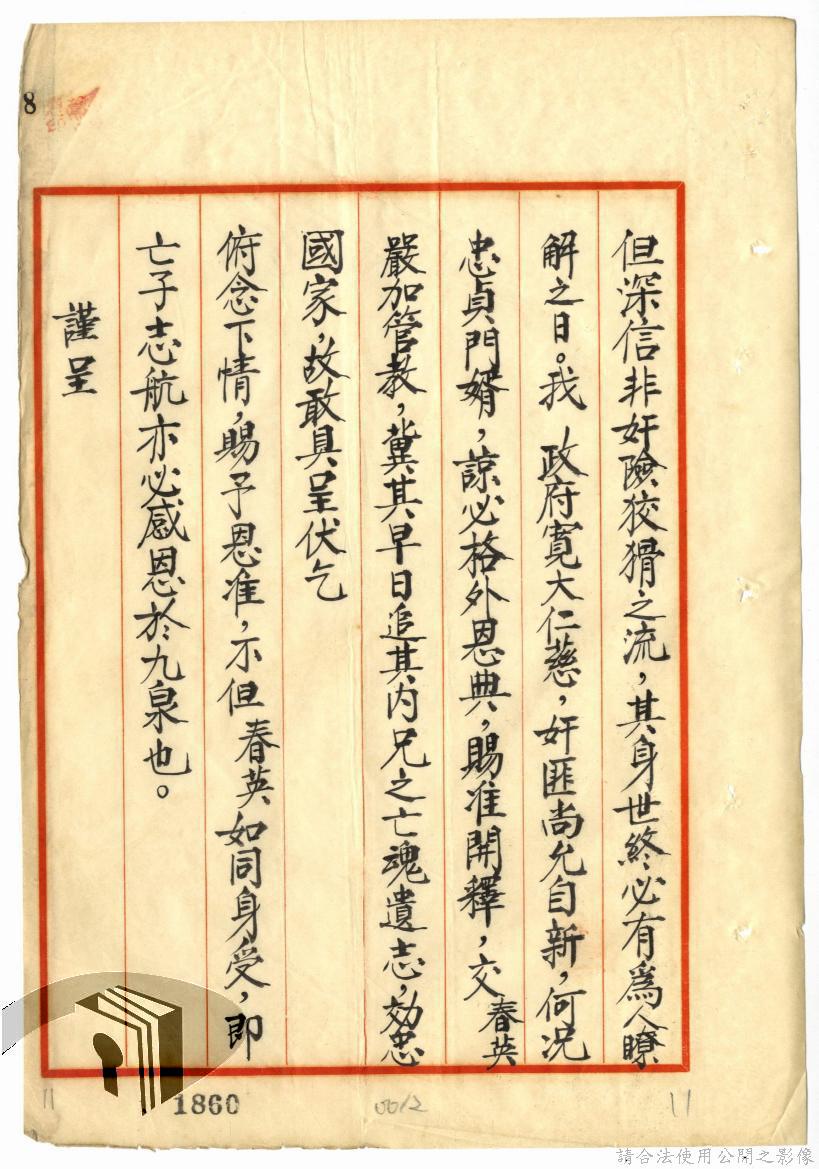 但深信非奸險狡猾之流，其身世終必有為人瞭
解之日。我 政府寬大仁慈，奸匪尚允自新，何況
忠貞門婿，諒必格外恩典，賜准開釋，交春英
嚴加管教，冀其早日追其內兄之亡魂遺志，効忠
國家，故敢具呈伏乞
俯念下情，賜予恩准，示但春英如同身受，即
亡子志航亦必感恩於九泉也。
謹呈
8
11
1860
0012
11
請合法使用公開之影像